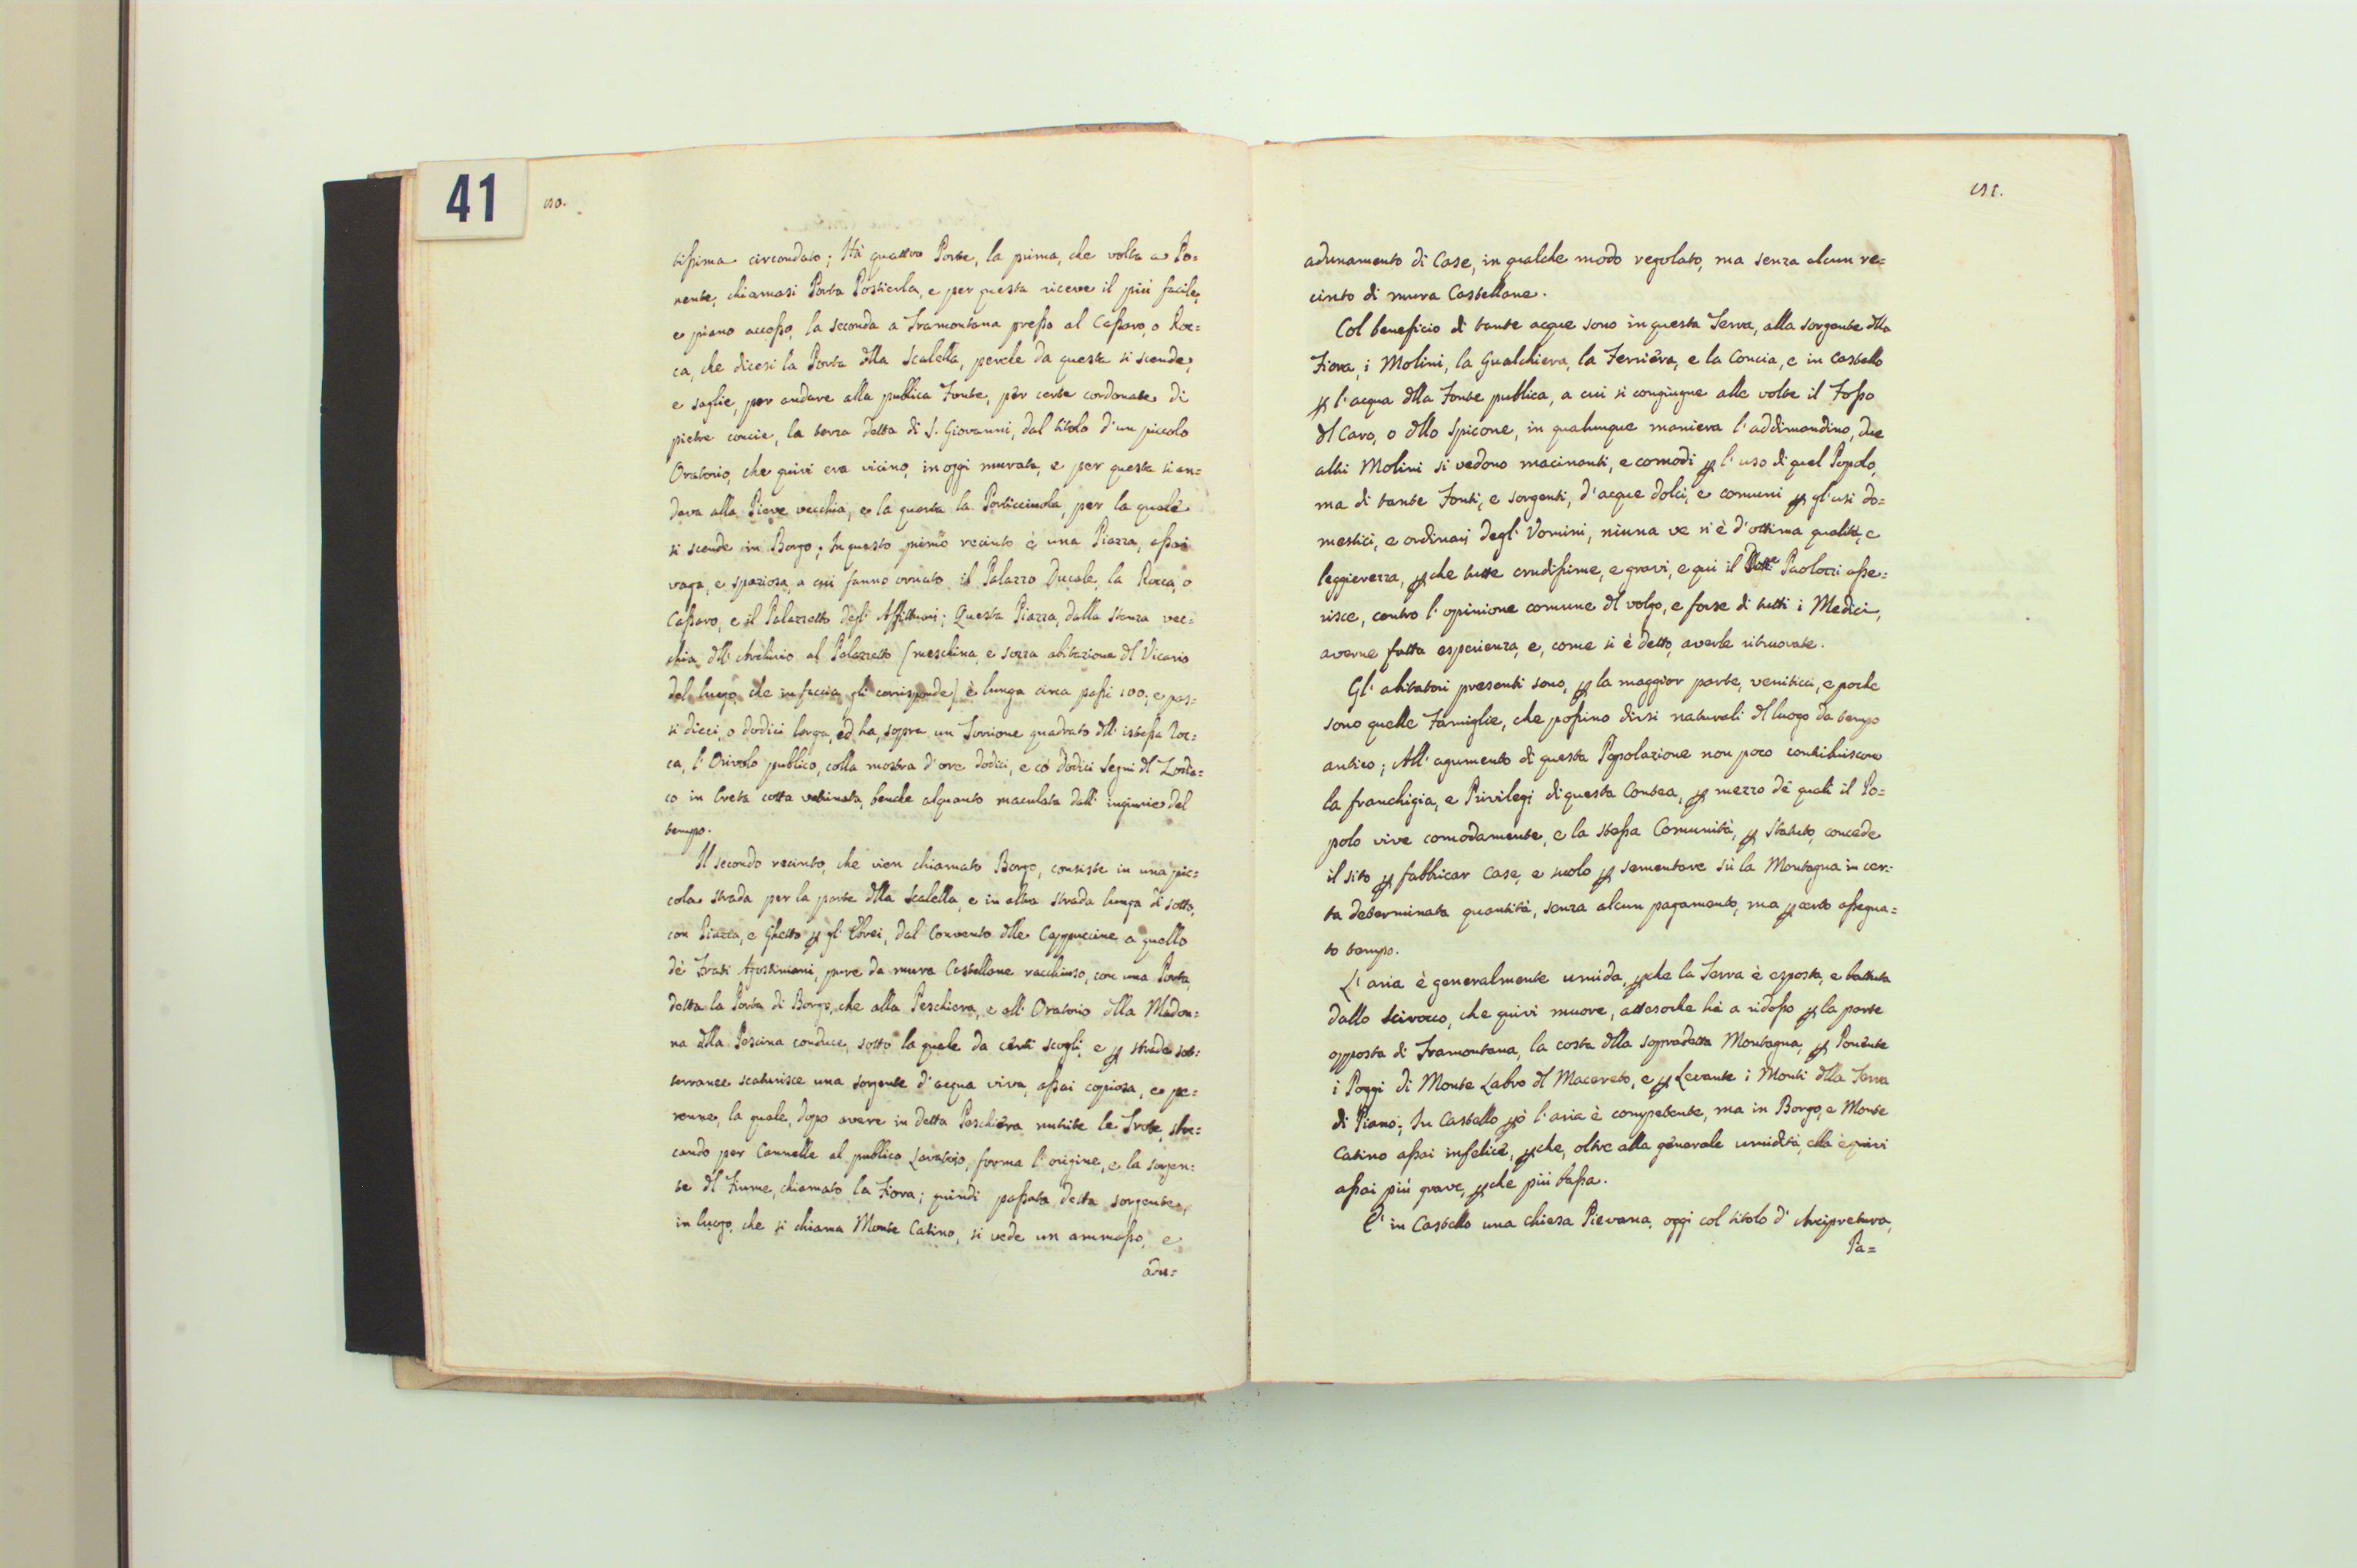 41
tissima circondato; Hà quattro Porte, la prima, che volta a Po=
nente, chiamasi Porta Posticcola, e per questa riceve il più facile,
e piano accesso, la seconda a Tramontana presso al Cassaro, o Roc=
ca, che dicesi la Porta dlla Scalella, perche da questa si scende,
e saglie, per andare alla publica Fonte, per certe cordonate di
pietre concie, la terza detta di S. Giovanni, dal titolo d'un piccolo
Oratorio, che quivi era vicino, in oggi murata, e per questa si an=
dava alla Pieve vecchia, e la quarta la Porticciuola, per la quale
si scende in Borgo; In questo primo recinto è una Piazza, assai
vaga, e spaziosa, a cui fanno ornato il Palazzo Ducale, la Rocca, o
Cassaro, e il Palazzetto degl' Affittuari; Questa Piazza, dalla stanza vec=
chia dll' Archivio al Palazzetto (meschina, e sozza abitazione dl Vicario
del luogo, che in faccia gli corrisponde) è lunga circa passi 100; e pas=
si dieci, o dodici larga, ed ha, sopra un Torrione quadrato dll' istessa Roc=
ca, l'Orivolo publico, colla mostra d'ore dodici, e cò dodici Segni dl Zodia=
co in Creta cotta vetrinata, benche alquanto maculata dall' ingiurie del
tempo.
Il secondo recinto, che vien chiamato Borgo, consiste in una pic=
cola strada per la parte dlla Scalella, e in altra strada lunga di sotto,
con Piazza, e Ghetto p gl' Ebrei, dal Convento dlle Cappuccine a quello
dè Frati Agostiniani, pure da mura Castellane racchiuso, con una Porta,
detta la Porta di Borgo, che alla Peschiera, e all' Oratorio dlla Madon=
na dlla Pescina conduce, sotto la quale da certi scogli, e p strade sot=
terranee scaturisce una sorgente d'acqua viva, assai copiosa, e pe=
renne, la quale, dopo avere in detta Peschiera nutrite le Trote,
cando per Cannelle al publico Lavatoio, forma l'origine, e la sorgen=
te dl Fiume, chiamato la Fiora; quindi passata detta sorgente,
in luogo, che si chiama Monte Catino, si vede un ammasso, e
adu=
adunamento di Case, in qualche modo regolato, ma senza alcun re=
cinto di mura Castellane.
Col beneficio di tante acque sono in questa Terra, alla sorgente dlla
Fiora, i Molini, la Gualchiera, la Ferriera, e la Concia, e in Castello
p l'acqua dlla Fonte publica, a cui si congiugne alle volte il Fosso
dl Cavo, o dllo Spicone, in qualunque maniera l'addimandino, due
altri Molini si vedono macinanti, e comodi p l'uso di quel Popolo,
ma di tante Fonti, e sorgenti, d'acque dolci, e comuni p gl'usi do=
mestici, e ordinarj degl' Vomini, niuna ve n'è d'ottima qualità, e
leggierezza, pche tutte crudissime, e gravi, e qui il Dott.e Paolozzi asse=
risce, contro l'opinione comune dl volgo, e forse di tutti i Medici,
averne fatta esperienza, e, come si è detto, averle ritruovate.
Gl' abitatori presenti sono, p la maggior parte, venitici, e poche
sono quelle Famiglie, che possino dirsi naturali dl luogo da tempo
antico; All' agumento di questa Popolazione non poco contribuiscono
la franchigia, e Privilegi di questa Contea, p mezzo dè quali il Po=
polo vive comodamente, e la stessa Comunità, p Statuto, concede
il sito p fabbricar Case, e suolo p sementare sù la Montagna in cer=
ta determinata quantità, senza alcun pagamento, ma p certo assegna=
to tempo.
L'aria è generalmente umida, pche la Terra è esposta, e battuta
dallo Scirocco, che quivi muore, attesoche hà a ridosso p la parte
opposta di Tramontana, la costa dlla sopradetta Montagna, p Ponente
i Poggi di Monte Labro dl Macereto, e p Levante i Monti dlla Terra
di Piano; In Castello pò l'aria è competente, ma in Borgo, e Monte
Catino assai infelice, pche, oltre alla generale umidità, ella è quivi
assai più grave, pche più bassa.
E' in Castello una chiesa Pievana, oggi col titolo d'Arcipretura,
Pa=